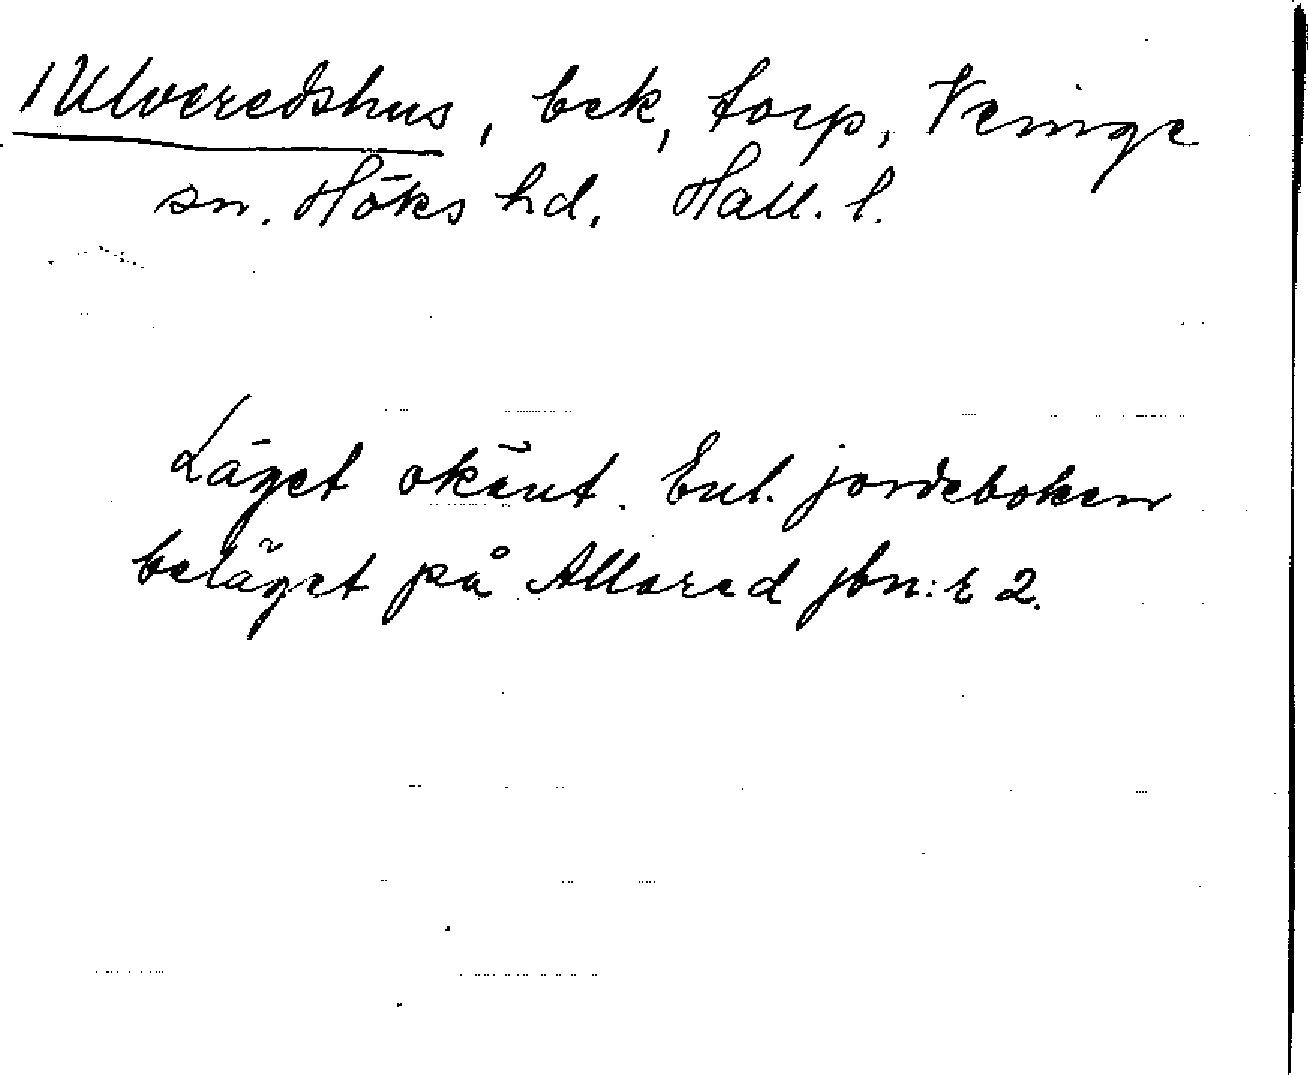 /Ulveredshus, bek, torp, Veinge
sn. Höks hd. Hall. l.
Läget okänt. Enl. jordeboken
beläget på Allared jbn:r 2.